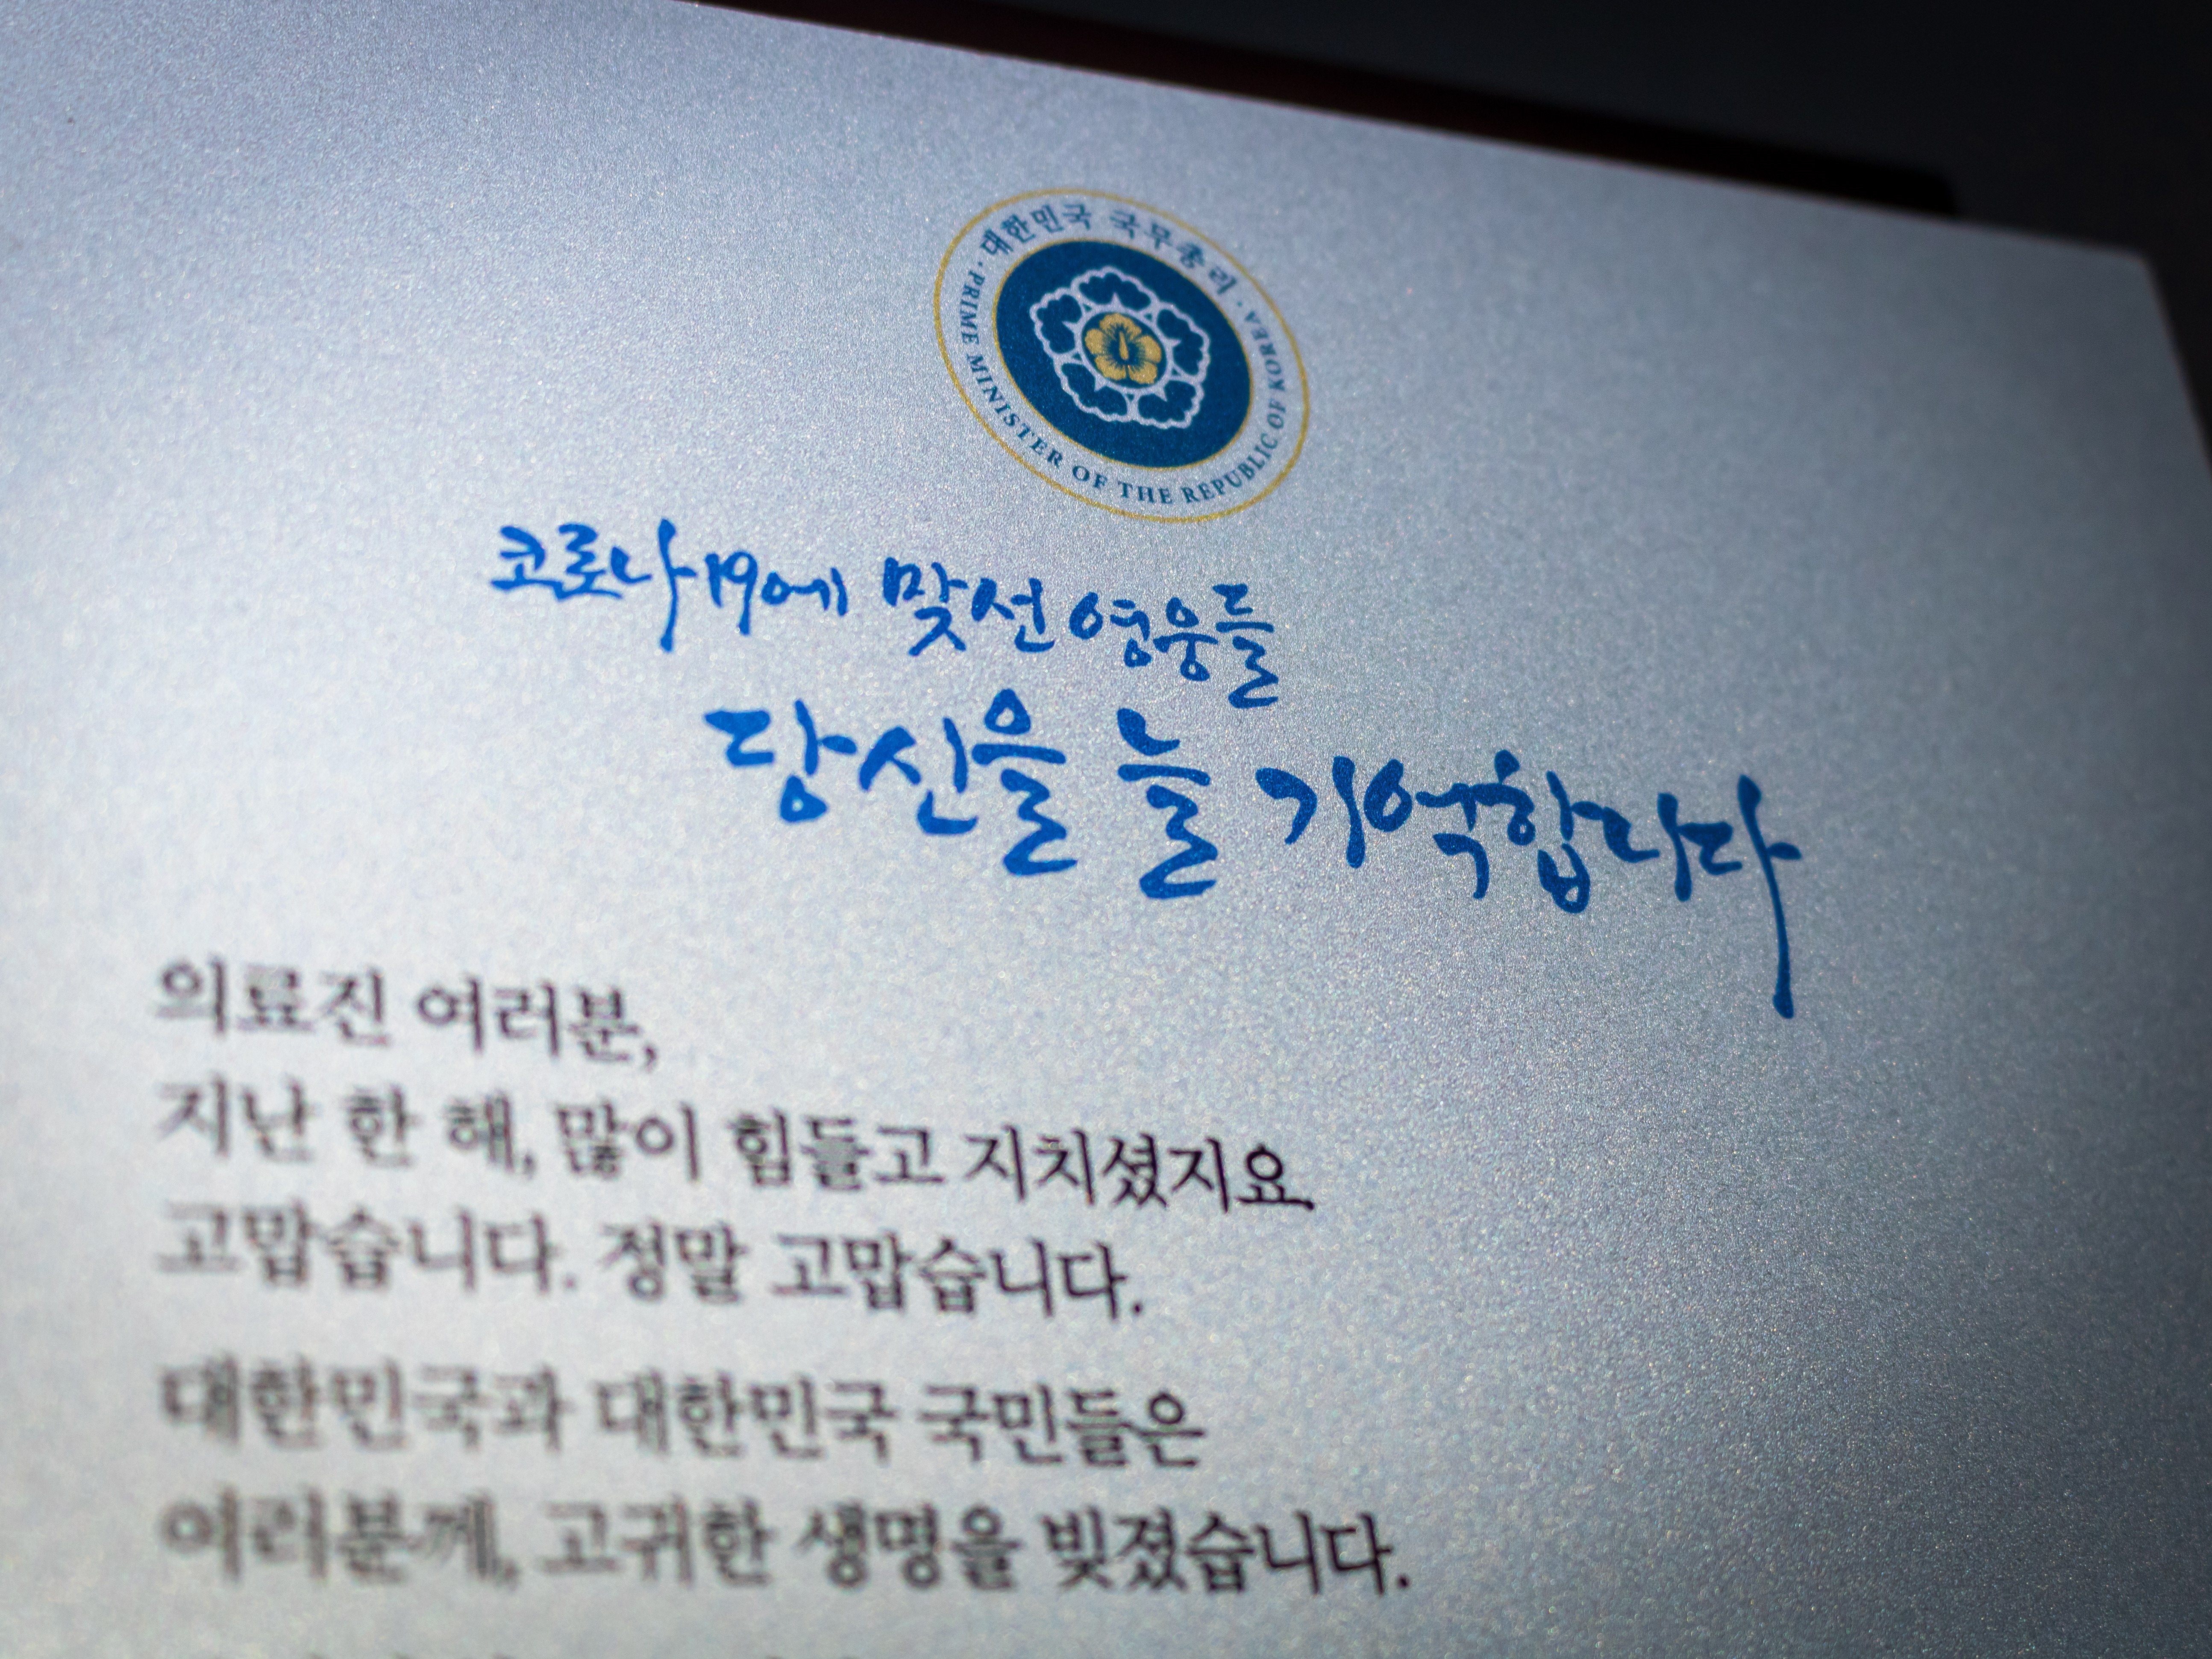 대한민국 국무총리
PRIME MINISTER OF THE REPUBLIC OF KOREA
코로나19에 맞선 영웅들
당신을 늘 기억합니다
의료진 여러분,
지난 한 해, 많이 힘들고 지치셨지요.
고맙습니다. 정말 고맙습니다.
대한민국과 대한민국 국민들은
여러분께, 고귀한 생명을 빚졌습니다.